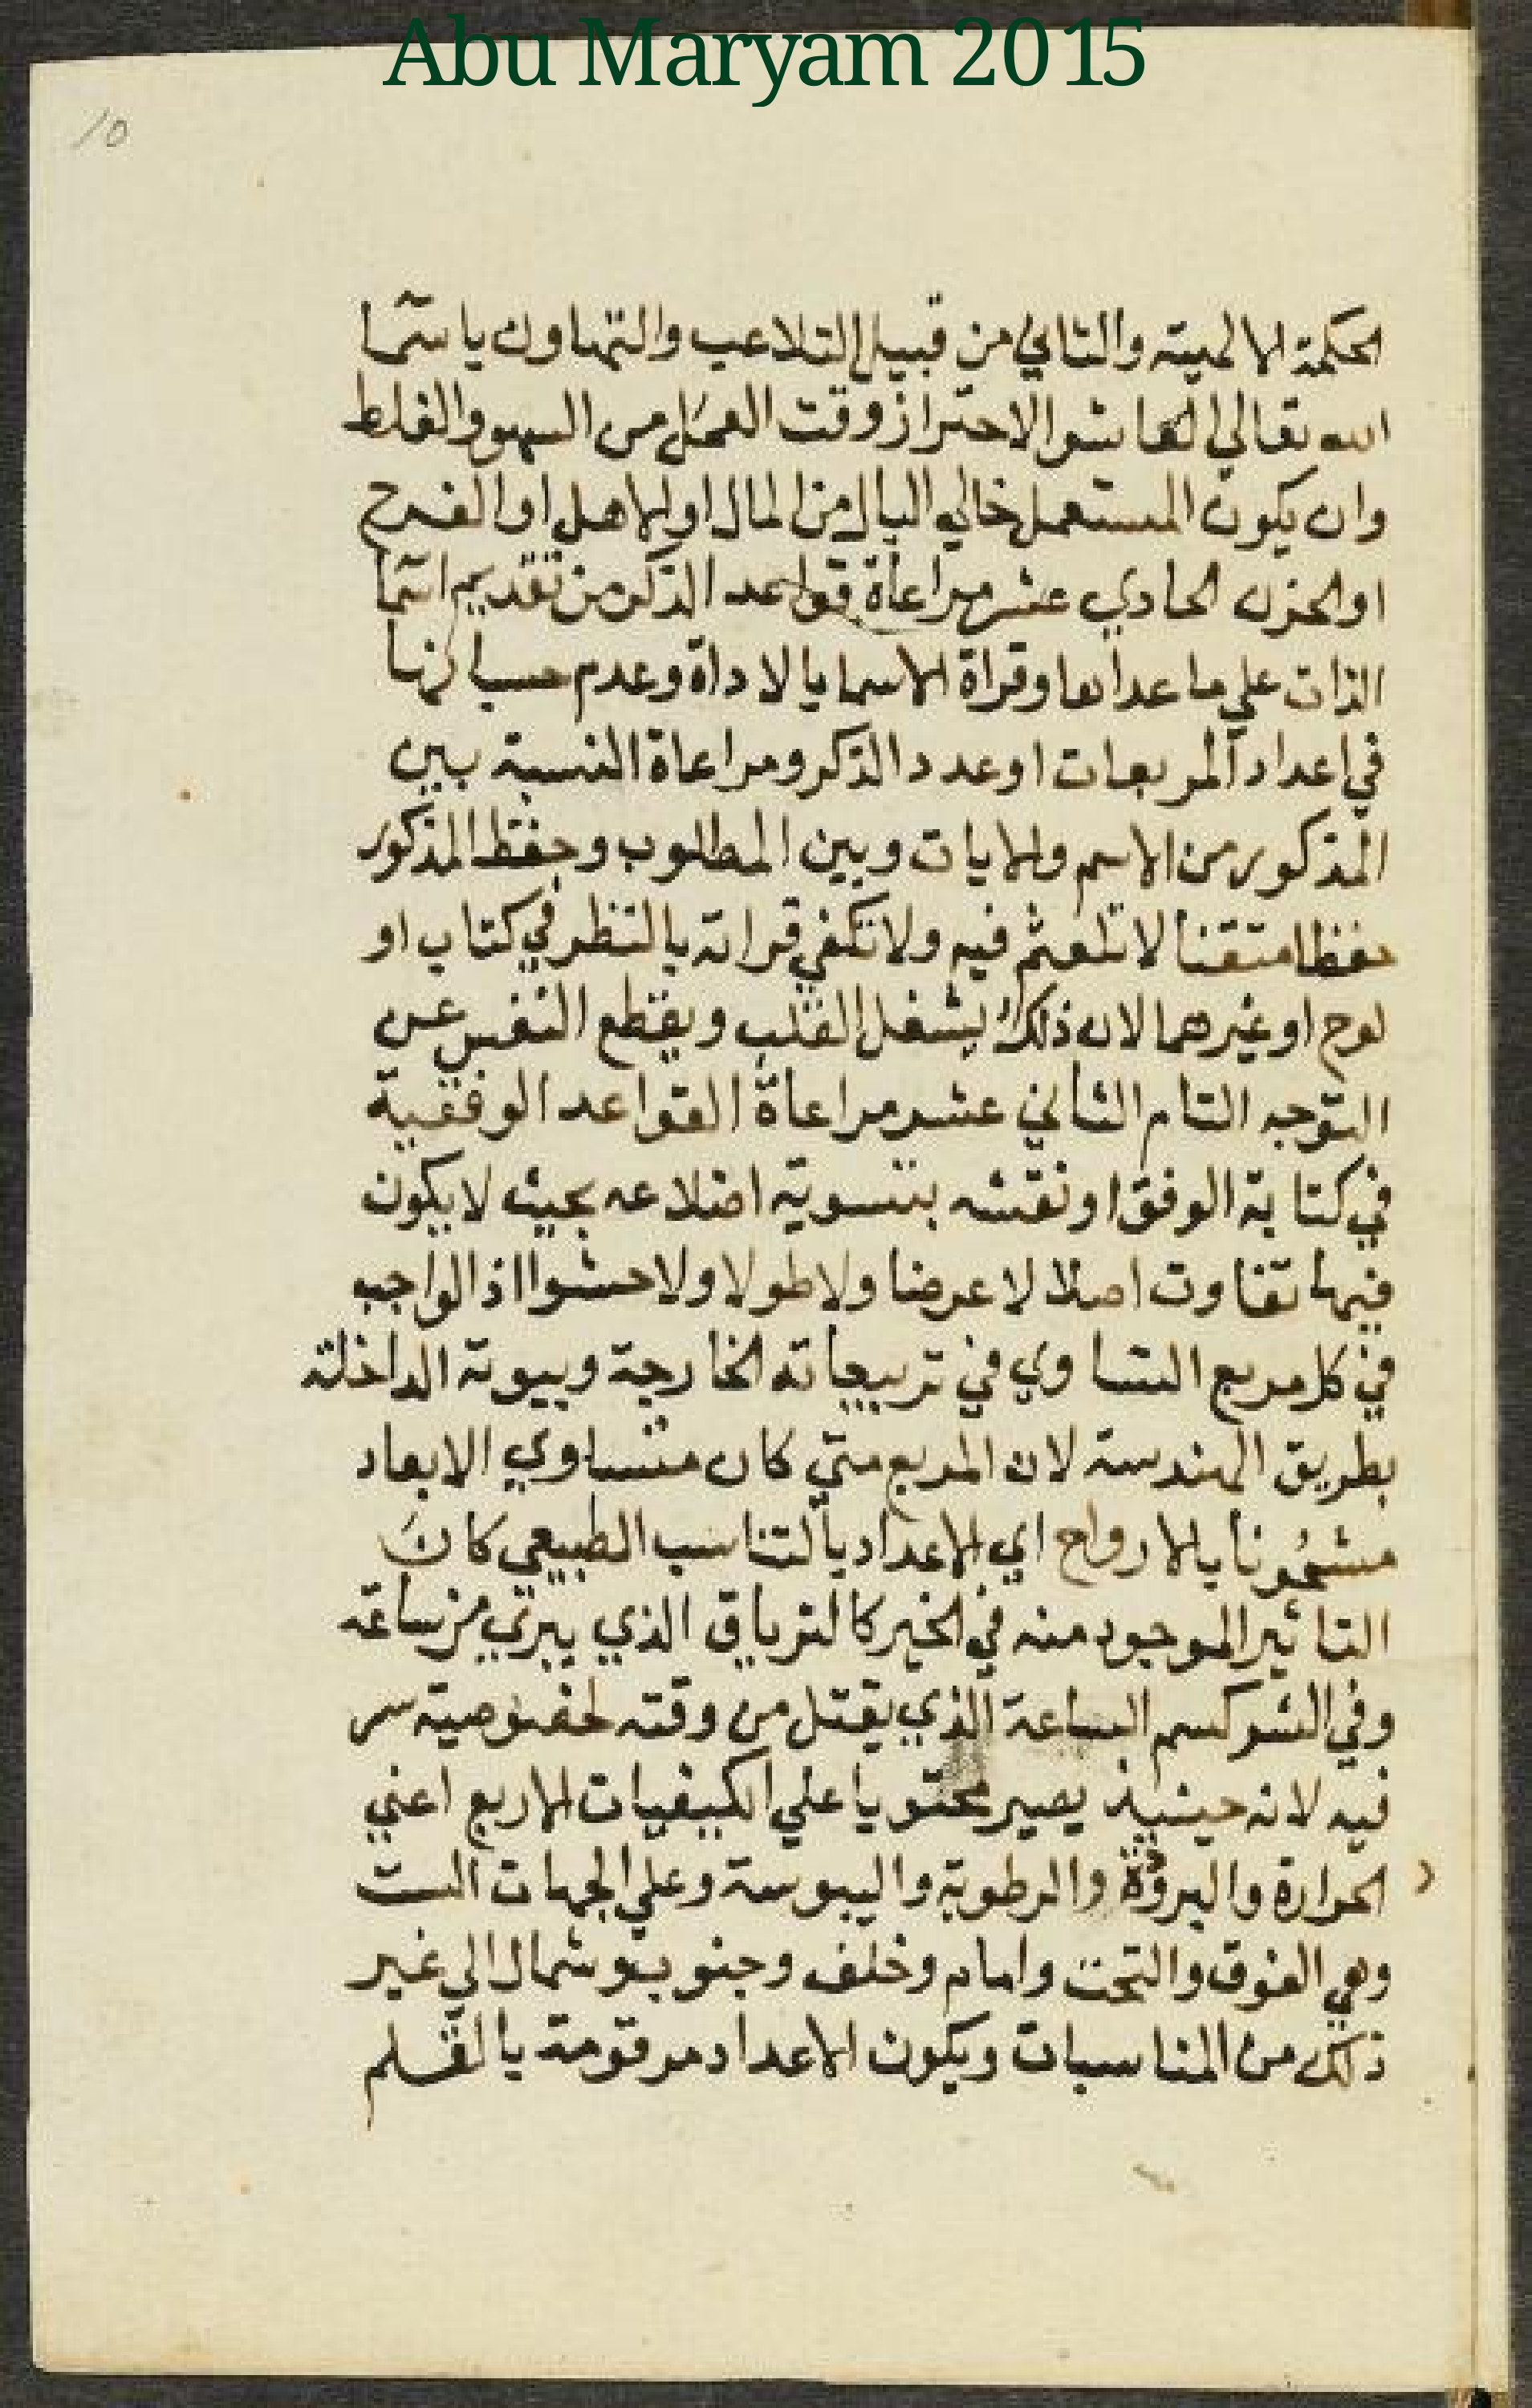 Abu Maryam 2015
10
الحكمة الالهية والتالي من قبيل التلاعب والتهاون باسما
الله تعالي العاشر الاحتراز وقت العمل من السهو والغلط
وان يكون المستعمل خالي البال من المال او الاهل او الفرح
او الحزن الحادي عشر مراعاة قواعد الذكر من تقديم اسما
الذات علي ما عداها وقراة الاسما بالاداة وعدم حسبانها
في اعداد المربعات او عدد الذكر ومراعاة النسبة بين
المذكور من الاسم والايات وبين المطلوب وحفظ المذكور
حفظا متقنا لا تلعثم فيه ولا تكفي قراته بالنظر في كتاب او
لوح او غيرهما لان ذلك يشغل القلب ويقطع النفس عن
التوجه التام الثاني عشر مراعاة القواعد الوفقية
في كتابة الوفق او نقشه بتسوية اضلاعه بحيث لا يكون
فيها تفاوت اصلا لا عرضا ولا طولا ولا حشوا اذ الواجب
في كل مربع التساوي في تربيعاته الخارجة وبيوته الداخلة
بطريق الهندسة لان المربع متي كان متساوي الابعاد
مشحونا بالارواح اي الاعداد بالتناسب الطبيعي كان
التاثير الموجود منه في الخير كالترياق الذي يبري من ساعته
وفي الشر كسم الساعة الذي يقتل من وقته لخصوصية سر
فيه لانه حينيذ يصير محتويا علي الكيفيات الاربع اعني
الحرارة والبرودة والرطوبة واليبوسة وعلي الجهات الست
وهي الفوق والتحت وامام وخلف وجنوب وشمال الي غير
ذلك من المناسبات ويكون الاعداد مرقومة بالقلم